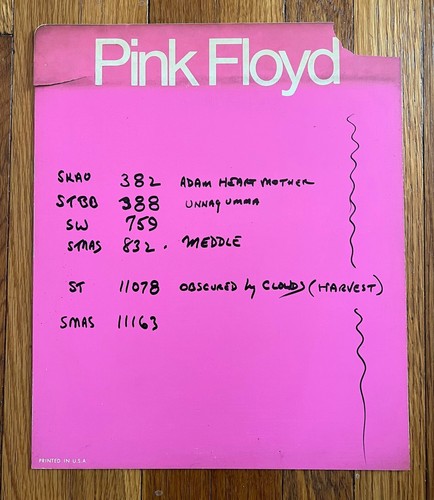 Pink Floyd
SKAO 382 ADAM HEART MOTHER
STBB 388 UNNAGUMMA
SW 759
STMAS 832. MEDDLE
ST 11078 OBSCURED by CLOUDS (HARVEST)
SMAS 11163
PRINTED IN U.S.A.